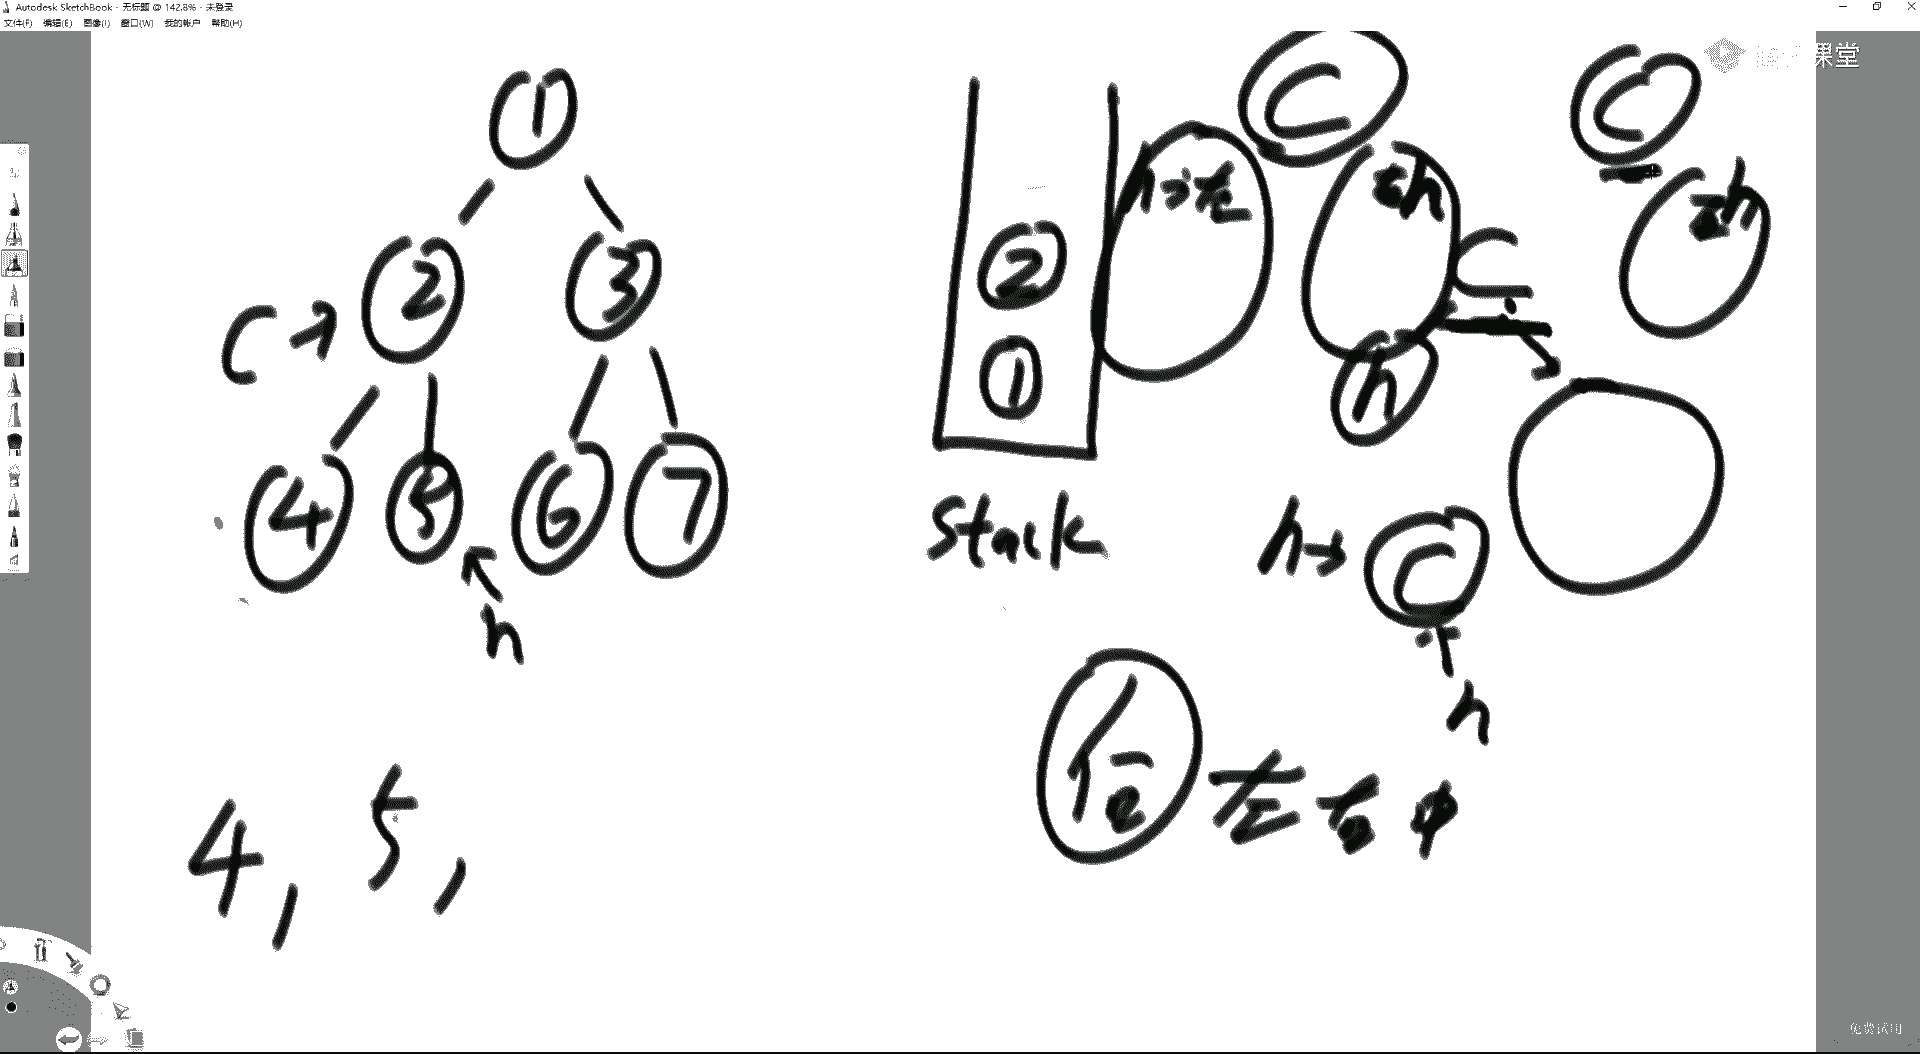 Autodesk SketchBook - 无标题 @ 142.8% - 未登录
文件(F) 编辑(E) 图像(I) 窗口(W) 我的帐户 帮助(H)
课堂
1
2 3
C→
4 5 6 7
h
4, 5,
2
1
stack
C
h
C
h
C
h
h→ C
h
左右中
免费试用